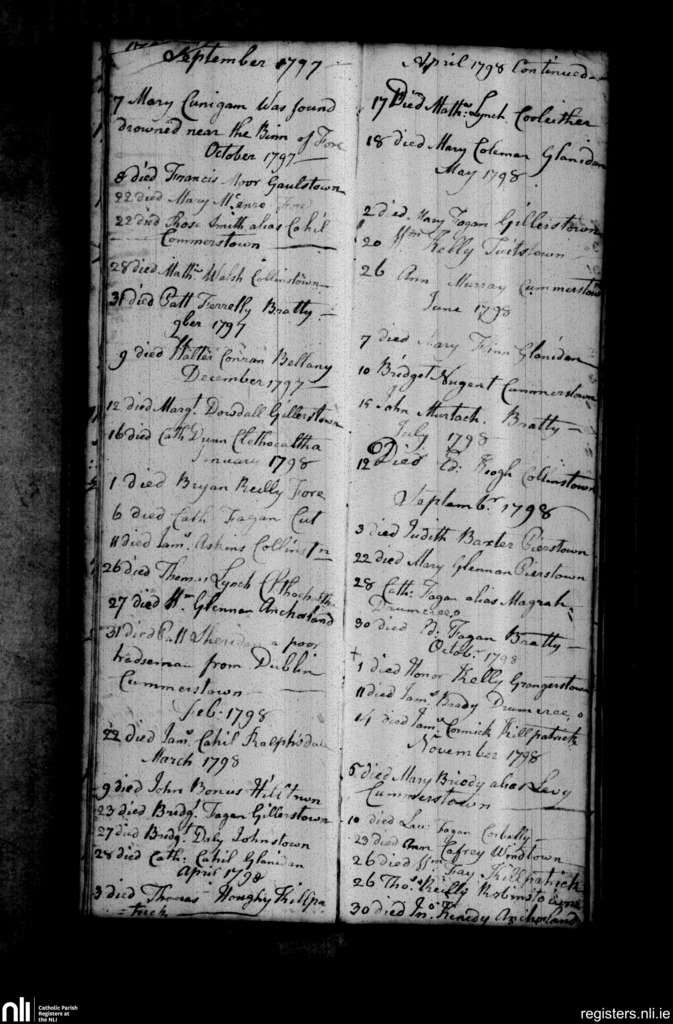 September 1797
7 Mary Cunigam was found
drowned near the Binn of Fore
October 1797
8 died Francis Moor Gaulstown
22 died Mary
22 died Rose Smith alias Cahil
Commerstown
28 died Mathw Walsh Collinstown
31 died Patt Ferrelly Bratty
9ber 1797
9 died Walter Conran Bellany
December 1797
12 died Margt. Dowdall Gillerstown
16 died Cath Dunn
January 1798
1 died Bryan Reilly Fore
6 died Cath Fagan Cut
11 died Jams. Askins Collinstn
26 died Thomas Lynch
27 died Wm. Glennan Anchorland
31 died Patt Sheridan a poor
tradseman from Dublin
Cummerstown
Feb. 1798
22 died Jams. Cahil Ralphsdale
March 1798
9 died John Bonus Hilltown
23 died Bridgt. Fagan Gillerstown
27 died Bridgt. Daly Johnstown
28 died Cath: Cahil Glanidan
April 1798
3 died Thomas Houghy Killpa
=trick
April 1798 Continued
17 Died Mathw: Lynch Cooleither
18 died Mary Coleman Glanidan
May 1798
2 died Mary Fagan Gillerstown
20 Wm Kelly Tuitstown
26 Ann Murray Cummerstown
June 1798
7 died Mary Finn Glanidan
10 Bridget Nugent Cummerstown
15 John Murtach. Bratty
July 1798
12 Died Ed: Keogh Collinstown
Septembr. 1798
3 died Judith Baxter Pierstown
22 died Mary Glennan Pierstown
28 Cath: Fagan alias Magrah
Drumcree
30 died Ed: Fagan Bratty
Octobr. 1798
1 died Honor Kelly Grangerstown
11 died Jams. Brady Drumcree
14 died Jams. Cormick Killpatrick
November 1798
5 died Mary Briody alias Levy
Cummerstown
10 died Lau: Fagan Corbally
23 died Ann Cafrey Windtown
26 died Wm Fay Killpatrick
26 Thos. Reilly Robinstown
30 died Jno. Kenedy Anchorland
nli
Catholic Parish
Registers at
the NLI
registers.nli.ie